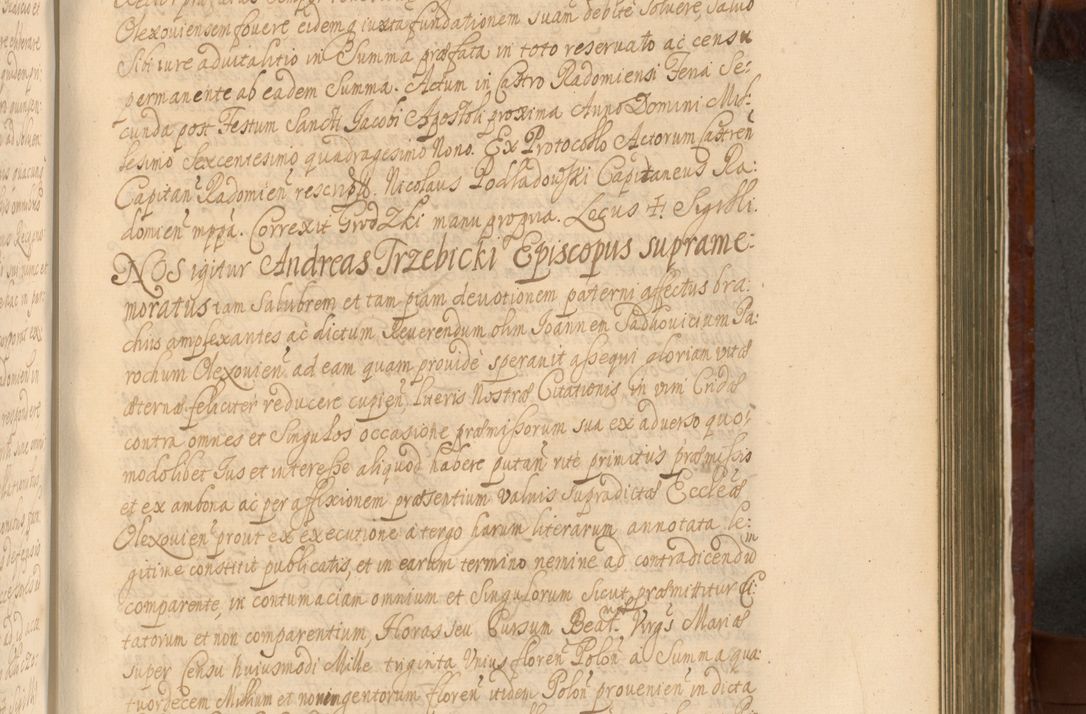 Olexoviensem fovere eidemq iuxta fundationem suam debite solvere, salvo
Sibi iure advitalitio in Summa præfata in toto reservato ac censu
permanente ab eadem Summa. Actum in Castro Radomiensi Feria Se:
cunda post Festum Sancti Jacobi Apostoli proxima Anno Domini Mil:
lesimo Sexcentesimo quadragesimo Nono. Ex Protocollo Actorum Castren
Capitan Radomien rescript. Nicolaus Podladowski Capitaneus Ra:
domien mppa. Correxit Grodzki manu propria. Locus ✝. Sigilli.
NOS igitur Andreas Trzebicki Episcopus suprame:
moratus tam salubrem et tam piam devotionem paterni affectus bra:
chiis amplexantes ac dictum Reverendum olim Joannem Paduovicium Pa:
rochum Olexovien ad eam quam provide speravit assequi gloriam vitæ
æternæ feliciter reducere cupien, literis Nostræ Citationis in vim Cridæ
contra omnes et Singulos occasione præmissorum sua ex adverso quo:
modolibet Jus et interesse aliquod habere putan rite primitus præmissis
et ex ambona ac per affixionem præsentium valvis supradictæ Eccleæ
Olexovien prout ex executione a tergo harum literarum annotata le:
gitime constitit publicatis, et in earum termino nemine ad contradicendū
comparente, in contumaciam omnium et Singulorum sicut præmittitur Ci:
tatorum et non comparentium, Horas seu Cursum Beat: Virgs Mariæ
super Censu huiusmodi Mille triginta Unius floren Polon a Summa qua:
tuordecem Millium et nonmgentorum floren itidem Polon provenien in dicta